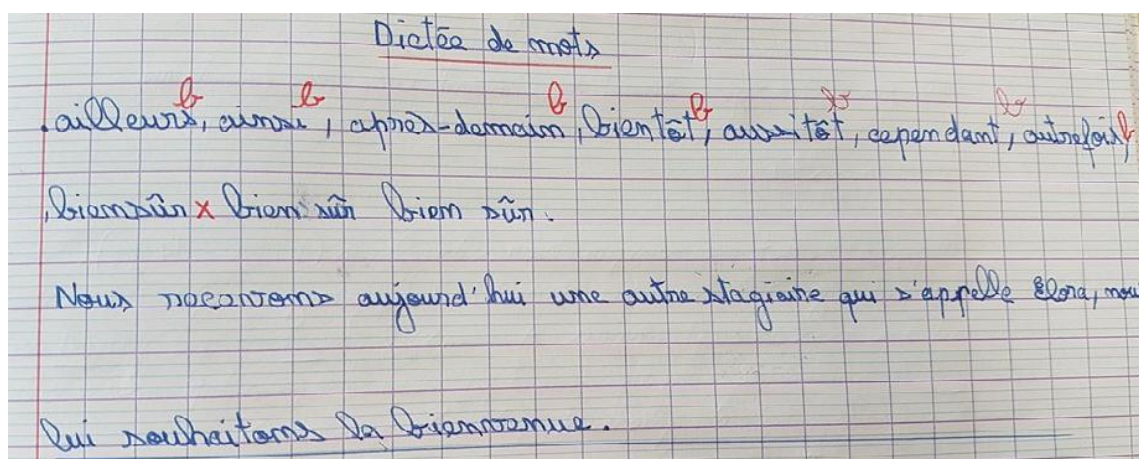 Dictée de mots
b b b b b b b
ailleurs, ainsi, après-demain, bientôt, aussitôt, cependant, autrefois,
biensûr x bien sûr bien sûr.
Nous recevrons aujourd'hui une autre stagiaire qui s'appelle Elora, nou
lui souhaitons la bienvenue.